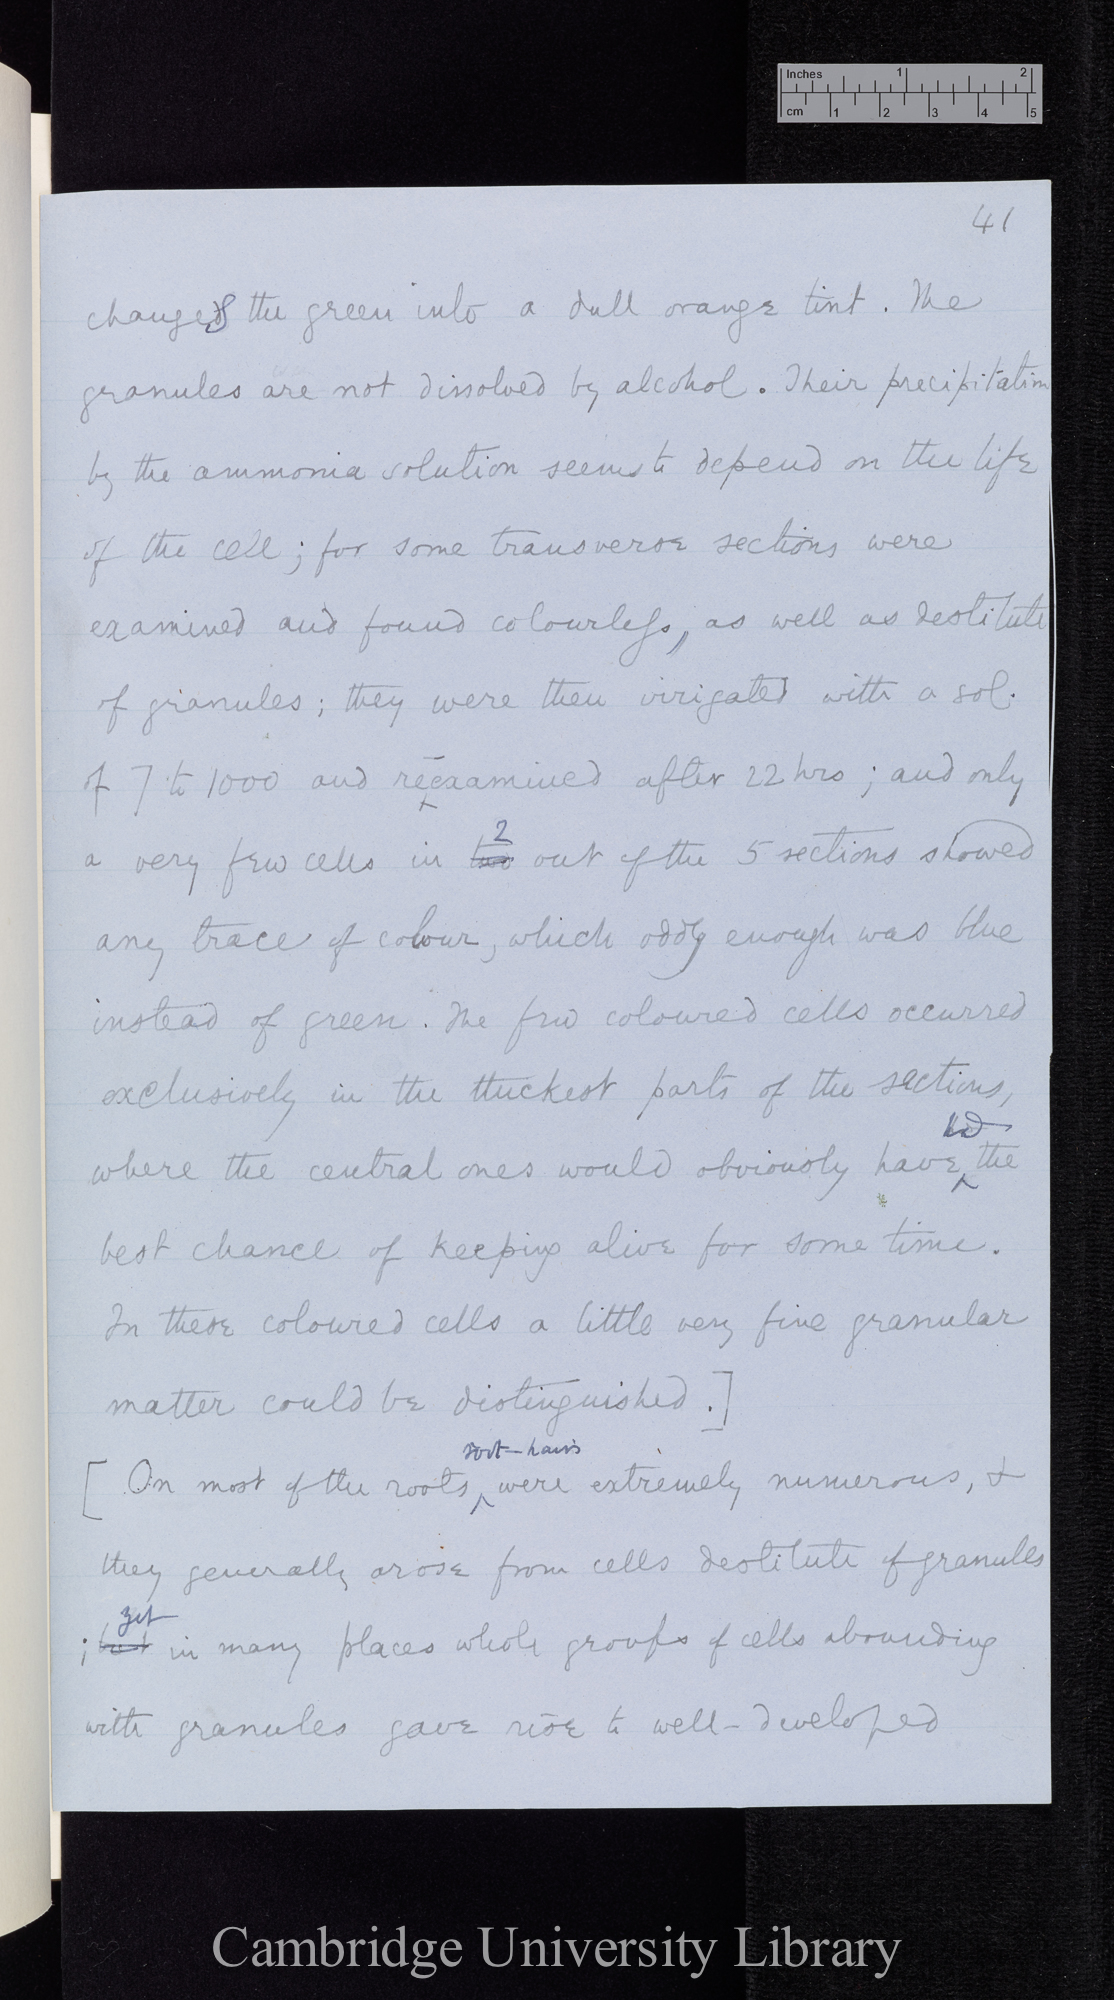 Inches 1 2
cm 1 2 3 4 5
41
changed the green into a dull orange tint. The
granules are not dissolved by alcohol. Their precipitation
by the ammonia solution seems to depend on the life
of the cell; for some transverse sections were
examined and found colourless, as well as destitute
of granules; they were then irrigated with a sol.
of 7 to 1000 and reexamined after 22 hrs; and only
2
a very few cells in two out of the 5 sections showed
any trace of colour, which oddly enough was blue
instead of green. The few coloured cells occurred
exclusively in the thickest parts of the sections,
had
where the central ones would obviously have the
best chance of keeping alive for some time.
In these coloured cells a little very fine granular
matter could be distinguished.]
root-hairs
[On most of the roots, were extremely numerous, &
they generally arose from cells destitute of granules
yet
; but in many places whole groups of cells abounding
with granules gave rise to well-developed
Cambridge University Library